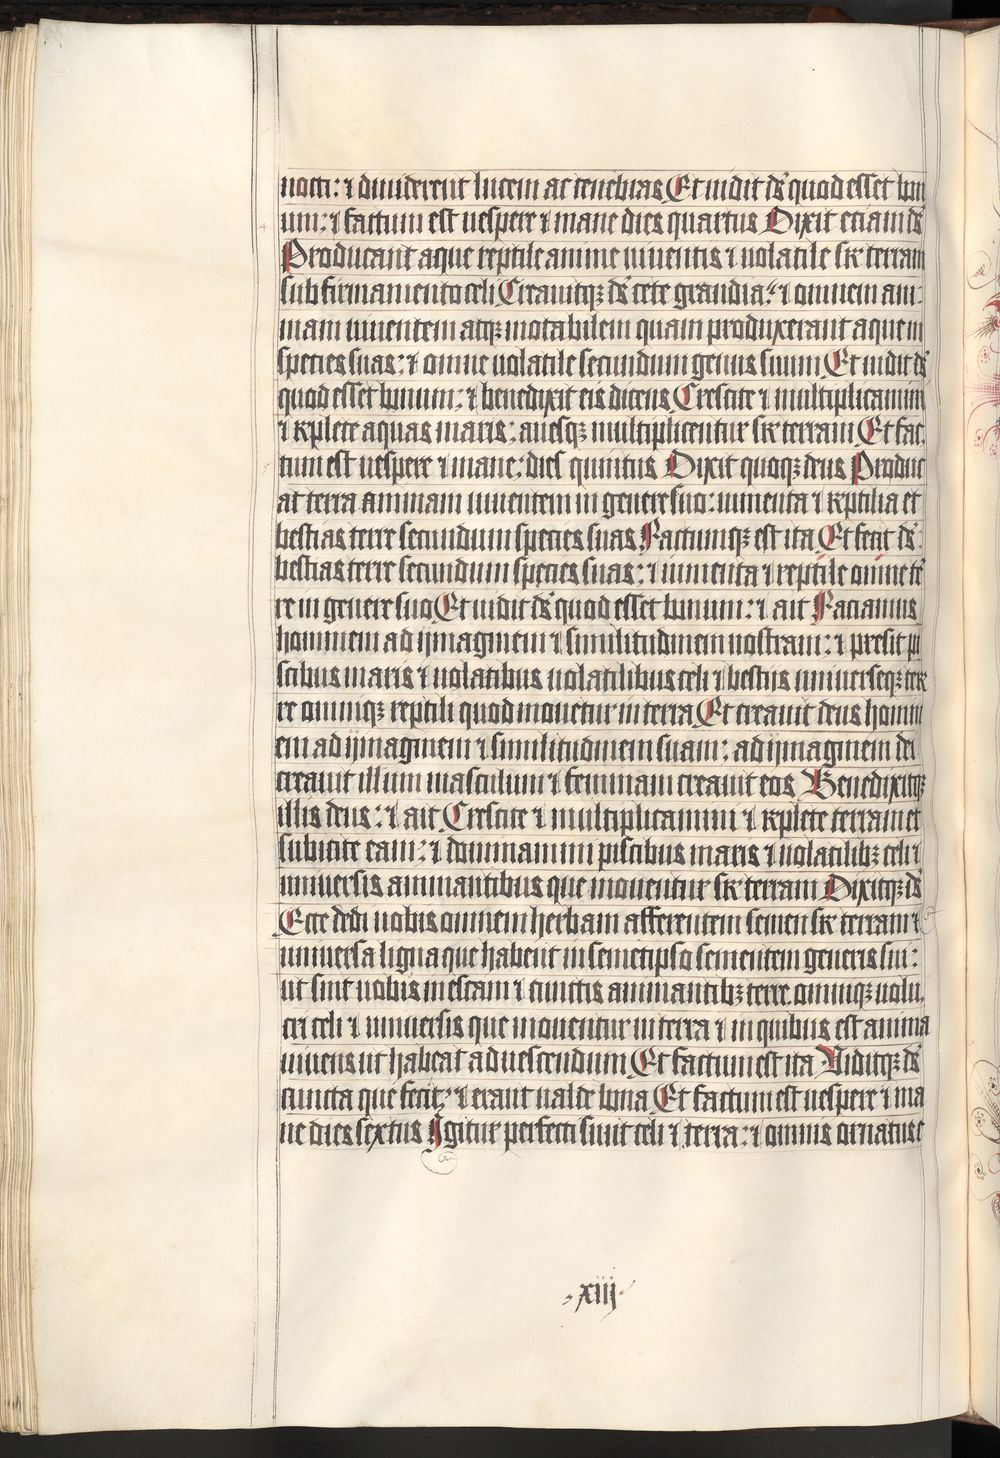 nocti: ⁊ diuiderent lucem ac tenebras Et uidit ds̄ quod esset bon
um: ⁊ factum est uespere ⁊ mane dies quartus Dixit etiam ds̄
Producant aque reptile anime uiuentis ⁊ uolatile sr̄ terram
sub firmamento celi Creauitqꝫ ds̄ cete grandia: ⁊ omnem ani-
mam uiuentem atqꝫ motabilem quam produxerant aque in
species suas: ⁊ omne uolatile secundum genus suum Et uidit ds̄
quod esset bonum: ⁊ benedixit eis dicens Crescite ⁊ multiplicamini
⁊ replete aquas maris: auesqꝫ multiplicentur sr̄ terram Et fac
tum est uespere ⁊ mane: dies quintus Dixit quoqꝫ deus Produc
at terra animam uiuentem in genere suo: iumenta ⁊ reptilia et
bestias terre secundum species suas Factumqꝫ est ita Et fecit ds̄
bestias terre secundum species suas: ⁊ iumenta ⁊ reptile omne te
re in genere suo Et uidit ds̄ quod esset bonum: ⁊ ait Faciamus
hominem ad ijmaginem ⁊ similitudinem nostram: ⁊ presit pi
scibus maris ⁊ uolatibus uolatilibus celi ⁊ bestijs uniuerseqꝫ ter
re omniqꝫ reptili quod mouetur in terra Et creauit deus homin
em ad ijmaginem ⁊ similitudinem suam: ad ijmaginem dei
creauit illum masculum ⁊ feminam creauit eos Benedixitqꝫ
illis deus: ⁊ ait Crescite ⁊ multiplicamini ⁊ replete terram et
subicite eam: ⁊ dominamini piscibus maris ⁊ uolatilibꝫ celi ⁊
uniuersis animantibus que mouentur sr̄ terram Dixitqꝫ ds̄
Ecce dedi uobis omnem herbam afferentem semen sr̄ terram ⁊
uniuersa ligna que habent in semetipso sementem generis sui:
ut sint uobis in escam ⁊ cunctis animantibꝫ terre. omniqꝫ uolu
cri celi ⁊ uniuersis que mouentur in terra ⁊ in quibus est anima
uiuens ut habeat ad uescendum Et factum est ita Viditqꝫ ds̄
cuncta que fecit: ⁊ erant ualde bona Et factum est uespere ⁊ ma
ne dies sextus Igitur perfecti sunt celi ⁊ terra: ⁊ omnis ornatus e
xiij